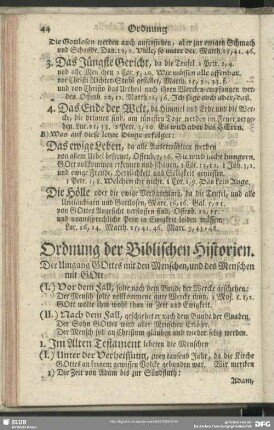 44 Ordnung
Die Gottlosen werden auch auferstehen, aber zur ewigen Schmach
und Schande, Dan. 12, 2.
3. Das Jüngste Gericht, da die Teufel 2 Petr. 2, 4.
und alle Menschen 2 Cor. 5, 10. Wir müssen alle offenbar.
vor Christi Richter-Stuhl gestellet, Matth. 25, 31. 32. f.
und von Christo das Urtheil nach ihren Wercken empfangen wer-
den, Offenb. 20, 12. Matth. 25,
4. Das Ende der Welt, da Himmel und Erden, und die Wer-
cke, die drinnen sind, am jüngsten Tage werden im Feuer verge-
hen, Luc. 21, 33. 2 Petr. 3, 10. Es wird aber des HErrn.
Was auf diese letzte Dinge erfolget:
Das ewige Leben, da alle Auserwählten werden
von allem Uebel befreyet, Offenb. 7, 16. Sie wird nicht hungern.
GOtt vollkommen erkennen und schauen, 1 Cor. 13, 12. 1 Joh. 3, 2.
und ewige Freude, Herrlichkeit und Seligkeit geniessen,
1 Petr. 1, 8.
Die Hölle oder die ewige Verdammniß, da die Teufel, und alle
Unglaubigen und Gottlosen, Marc. 16, 16.
von GOttes Angesicht verstossen sind, Offenb. 22, 15.
und unaussprechliche Pein in Ewigkeit leiden müssen,
Luc. 16, 24. Matth. 25, 41. 46. Marc. 9, 43. 48.
Ordnung der Biblischen Historien.
Der Umgang GOttes mit den Menschen, und des Menschen
mit GOtt.
(I.) Vor dem Fall, solte nach dem Bunde der Wercke geschehen:
Der Mensch solte vollkommene gute Wercke thun. 1 Mos. 2.
GOtt wolte ihm wohl thun in Zeit und Ewigkeit.
(II.) Nach dem Fall, geschiehet er nach dem Bunde der Gnaden.
Der Sohn GOttes ward aller Menschen Erlöser.
Der Mensch soll an Christum glauben und wieder selig werden.
1. Im Alten Testament lebeten die Menschen
(I.) Unter der Verheissung, zwey tausend Jahr, da die Kirche
GOttes an keinem gewissen Volcke gebunden war. Wir mercken
1) Die Zeit von Adam bis zur Sündfluth:
Adam,
SLUB
DFG